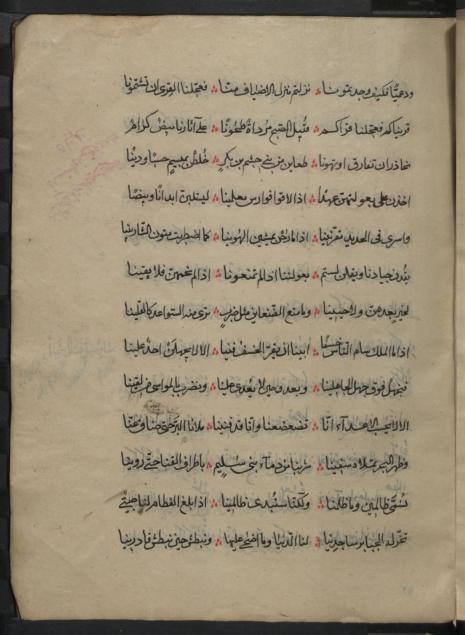 فكيف وجدتمونا ∴ نزلتم منزل الاضياف منّا ∴ فعجّلنا القرى ان تشتمونا
قريناكم فعجّلنا قراكم ∴ قبيل الصبح مرداة طحونا ∴ على آثارنا بيض كرام
نحاذر ان تفارق او تهونا ∴ ظعاين من بني جشم بن بكر ∴ خلطن بميسم حسبا ودينا
اخذن على بعولتهن عهدا ∴ اذا لاقوا فوارس معلمينا ∴ ليستلبن ابدانا وبيضا
واسرى في الحديد مقرنينا ∴ اذا ما رحن يمشين الهوينا ∴ كما اضطربت متون الشاربينا
يقدن جيادنا ويقلن لستم ∴ بعولتنا اذا لم تمنعونا ∴ اذا لم نحمهن فلا بقينا
لخير بعدهن ولا حيينا ∴ وما منع الظعاين مثل ضرب ∴ ترى منه السواعد كالقلينا
اذا ما الملك سام الناس خسفا ∴ ابينا ان يقرّ الخسف فينا ∴ الا لا يجهلن احد علينا
فنجهل فوق جهل الجاهلينا ∴ ونعدو حين لا يعدى علينا ∴ ونضرب بالمواسى من لقينا
الا لا يحسب الاعداء انّا ∴ تضعضعنا وانا قد فنينا ∴ ملانا البر حتى ضاق عنّا
وظهر البحر نملاه سفينا ∴ شربنا من دماء بنى سليم ∴ باطراف القنا حتى روينا
نسمى ظالمين وما ظلمنا ∴ ولكنا سنبدى ظالمينا ∴ اذا بلغ الفطام لنا صبى
تخر له الجبابر ساجدينا ∴ لنا الدنيا وما اضحى عليها ∴ ونبطش حين نبطش قادرينا